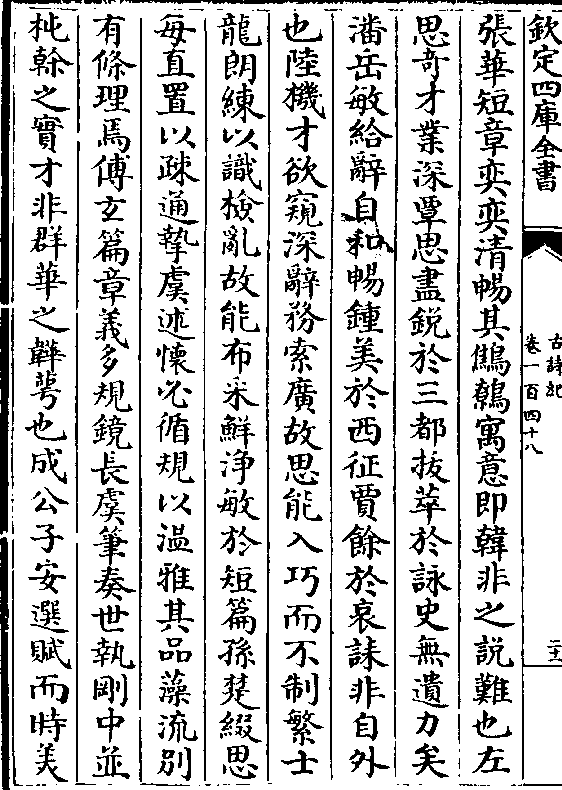 欽定四庫全書
古詩紀
卷一百四十八
二十一
張華短章奕奕清暢其鷦鷯寓意即韓非之說難也左
思奇才業深覃思盡銳於三都拔萃於詠史無遺力矣
潘岳敏給辭自和暢鍾美於西征賈餘於哀誄非自外
也陸機才欲窺深辭務索廣故思能入巧而不制繁士
龍朗練以識檢亂故能布采鮮淨敏於短篇孫楚綴思
每直置以疎通摯虞述懷必循規以溫雅其品藻流別
有條理焉傅玄篇章義多規鏡長虞筆奏世執剛中並
杶榦之實才非群華之韡萼也成公子安選賦而時美